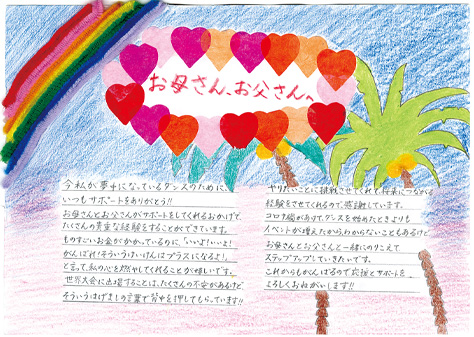 お母さん、お父さんへ
今私が夢中になっているダンスのために、
いつもサポートをありがとう!!
お母さんとお父さんがサポートをしてくれるおかげで、
たくさんの貴重な経験をすることができています。
ものすごいお金がかかっているのに、「いいよ!いいよ!
がんばれ!そういうはいけんはプラスになるよ!」
と言って、私の心を燃やしてくれることが嬉しいです。
世界大会に出場することは、たくさんの不安があるけど、
そういうはげましの言葉で背中を押してもらっています!!
やりたいことに挑戦させてくれて、将来につながる
経験をさせてくれるので、感謝しています。
コロナ禍があけて、ダンスを始めたときよりも
イベントが増えたからわからないこともあるけど
お母さんとお父さんと一緒にのりこえて
ステップアップしていきたいです。
これからもがんばるので応援とサポートを、
よろしくおねがいします!!